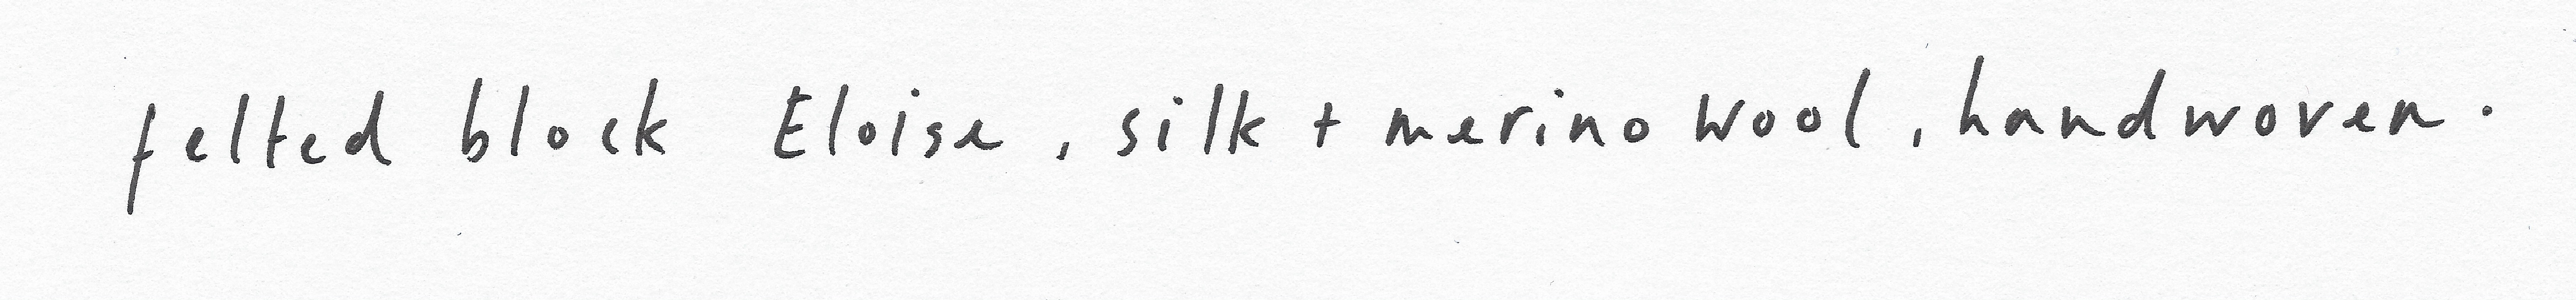 felted block Eloise, silk + merino wool, handwoven.